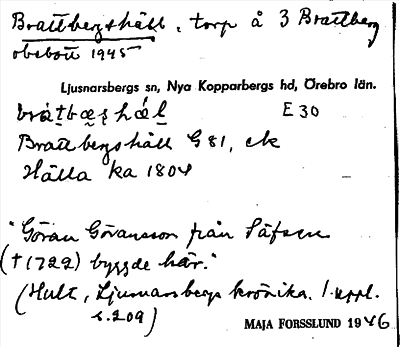 Brattbergshäll, torp å 3 Brattberg
obebott 1945
Ljusnarsbergs sn, Nya Kopparbergs hd, Örebro län.
E 30
Brattbergshäll G 81, ek
Hälla ka 1804
"Göran Göransson från Säfsen
(†1722) byggde här."
(Hult, Ljusnarsbergs krönika, 1. uppl.
s. 209)
MAJA FORSSLUND 1946